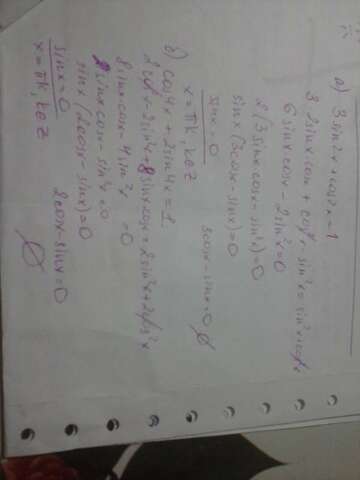 а) 3 sin2x + cos2x = 1
3·2sinx cosx + cos²x - sin²x = sin²x + cos²x
6 sinx cosx - 2 sin²x = 0
2 (3 sinx cosx - sin²x) = 0
sinx (3cosx - sinx) = 0
sinx = 0 3cosx - sinx = 0 ∅
x = πk, k∈Z
б) cos4x + 2 sin4x = 1
8 sinx cosx - 4 sin²x = 0
2 sinx cosx - sin²x = 0
sinx (2cosx - sinx) = 0
sinx = 0 2cosx - sinx = 0
x = πk, k∈Z ∅